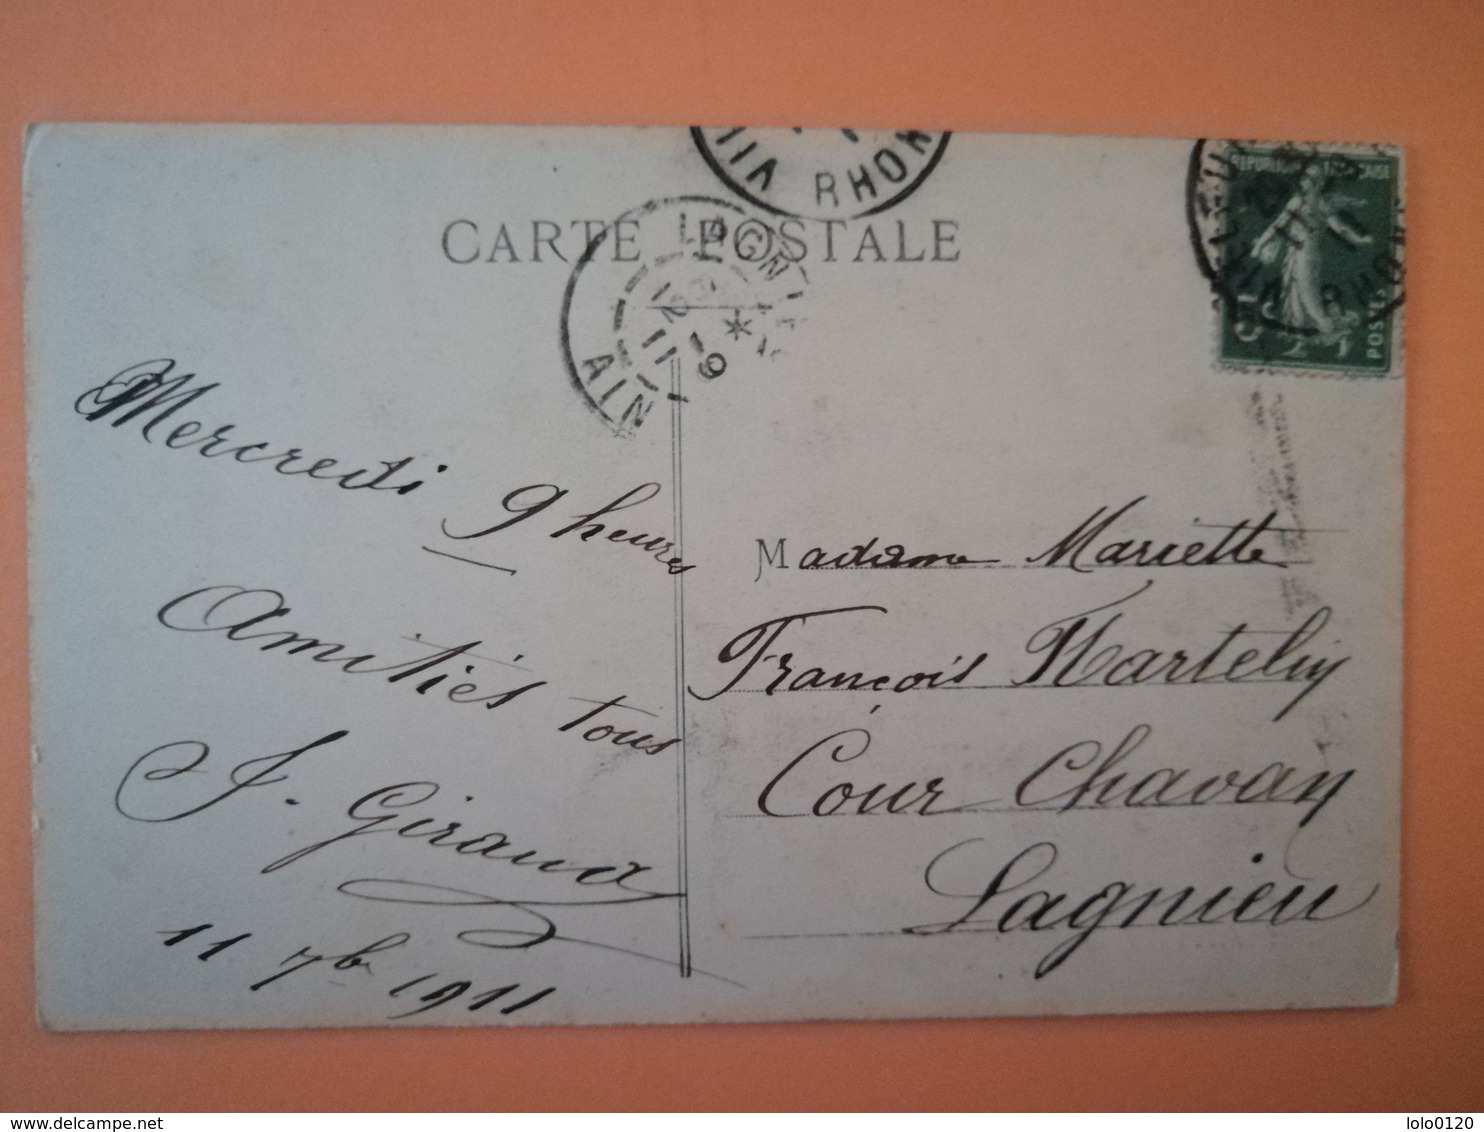 CARTE POSTALE
RHON
LAGNI
12
11 - 9
11
AIN
RÉPUBLIQUE FRANÇAISE
POSTES
Mercredi
9 heures
Amitiés tous
J. Giraud
11 7b 1911
Madame Mariette
François Martelin
Cour Chavan
Lagnieu
www.delcampe.net
lolo0120